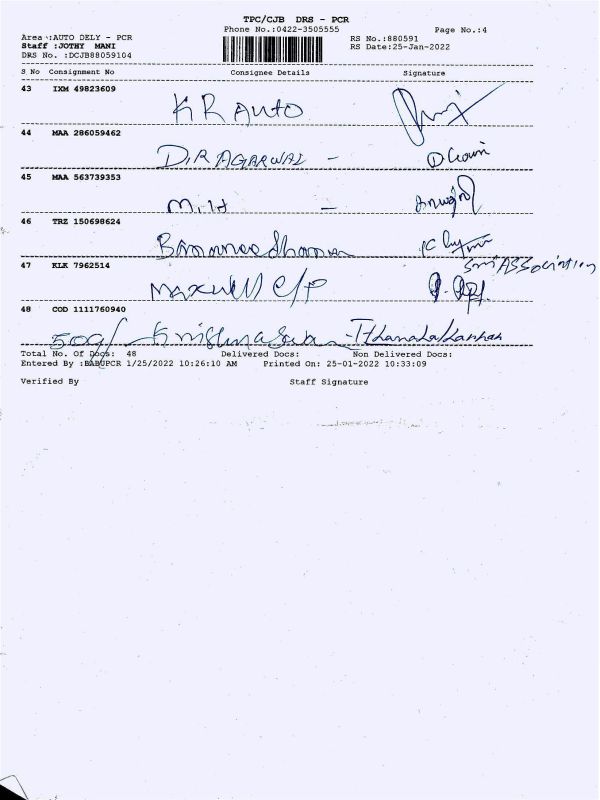 TPC/CJB DRS - PCR
Phone No.:0422-3505555 Page No.:4
Area :AUTO DELY - PCR RS No.:880591
Staff :JOTHY MANI RS Date:25-Jan-2022
DRS No. :DCJB88059104
S No Consignment No Consignee Details Signature
43 IXM 49823609
KR Auto
44 MAA 286059462
D.R AGARWAL -
45 MAA 563739353
46 TRZ 150698624
47 KLK 7962514
C/P
48 COD 1111760940
509/
Total No. Of Docs: 48 Delivered Docs: Non Delivered Docs:
Entered By :BABUPCR 1/25/2022 10:26:10 AM Printed On: 25-01-2022 10:33:09
Verified By Staff Signature